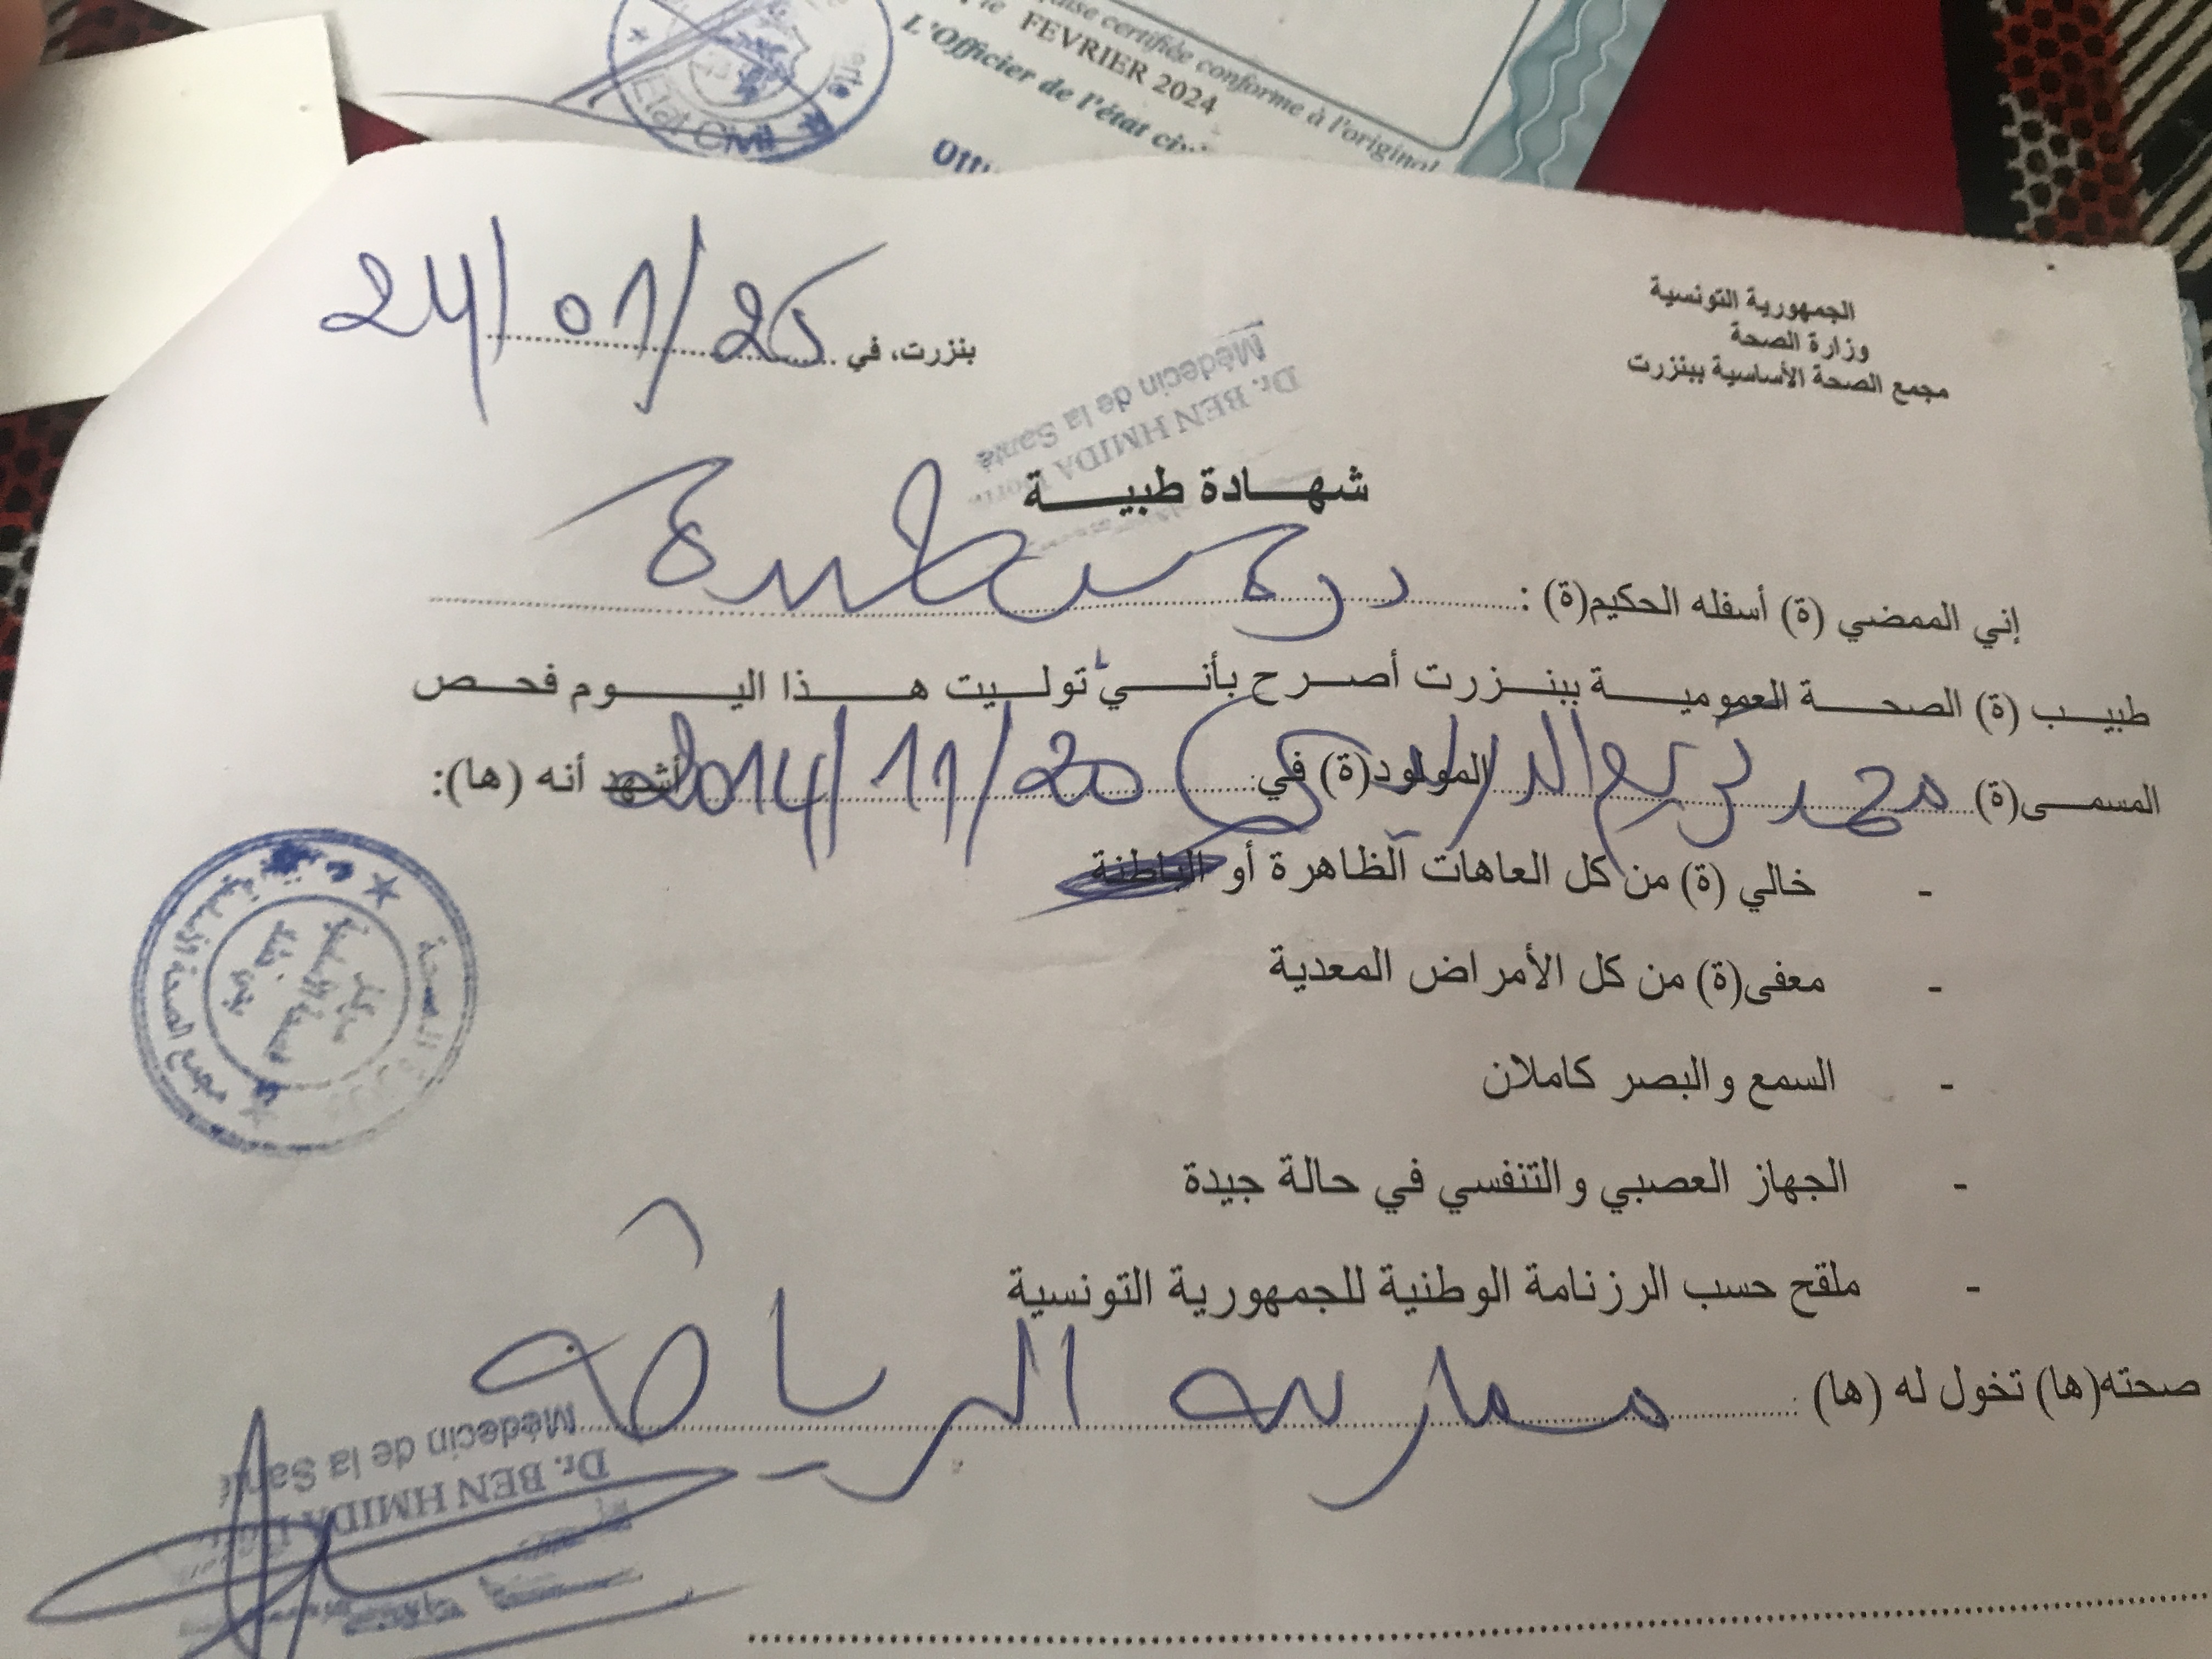 certifiée conforme à l'original
FEVRIER 2024
L'Officier de l'état
Etat Civil
الجمهورية التونسية
وزارة الصحة
مجمع الصحة الأساسية ببنزرت
بنزرت، في 24/01/25
Dr. BEN HMIDA
Médecin de la Santé
شهادة طبية
إني الممضي (ة) أسفله الحكيم(ة) :
طبيب (ة) الصحة العمومية ببنزرت أصرح بأني توليت هذا اليوم فحص
المسمى(ة) محمد المولود(ة) في 2014/11/20 أشهد أنه (ها):
- خالي (ة) من كل العاهات الظاهرة أو الباطنة
- معفى(ة) من كل الأمراض المعدية
- السمع والبصر كاملان
- الجهاز العصبي والتنفسي في حالة جيدة
- ملقح حسب الرزنامة الوطنية للجمهورية التونسية
صحته(ها) تخول له (ها) : ممارسة الرياضة
مجمع الصحة الأساسية
Dr. BEN HMIDA
Médecin de la Santé